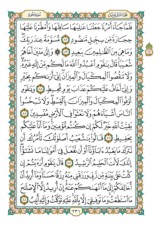 فَلَمَّا جَآءَ أَمْرُنَا جَعَلْنَا عَٰلِيَهَا سَافِلَهَا وَأَمْطَرْنَا عَلَيْهَا
حِجَارَةً مِّن سِجِّيلٍ مَّنضُودٍ ٨٢ مُّسَوَّمَةً عِندَ رَبِّكَ
وَمَا هِىَ مِنَ ٱلظَّٰلِمِينَ بِبَعِيدٍ ٨٣ وَإِلَىٰ مَدْيَنَ أَخَاهُمْ
شُعَيْبًا قَالَ يَٰقَوْمِ ٱعْبُدُوا۟ ٱللَّهَ مَا لَكُم مِّنْ إِلَٰهٍ غَيْرُهُۥ
وَلَا تَنقُصُوا۟ ٱلْمِكْيَالَ وَٱلْمِيزَانَ إِنِّىٓ أَرَىٰكُم بِخَيْرٍ
وَإِنِّىٓ أَخَافُ عَلَيْكُمْ عَذَابَ يَوْمٍ مُّحِيطٍ ٨٤ وَيَٰقَوْمِ
أَوْفُوا۟ ٱلْمِكْيَالَ وَٱلْمِيزَانَ بِٱلْقِسْطِ وَلَا تَبْخَسُوا۟
ٱلنَّاسَ أَشْيَآءَهُمْ وَلَا تَعْثَوْا۟ فِى ٱلْأَرْضِ مُفْسِدِينَ ٨٥
بَقِيَّتُ ٱللَّهِ خَيْرٌ لَّكُمْ إِن كُنتُم مُّؤْمِنِينَ وَمَآ أَنَا۠ عَلَيْكُم
بِحَفِيظٍ ٨٦ قَالُوا۟ يَٰشُعَيْبُ أَصَلَوٰتُكَ تَأْمُرُكَ أَن نَّتْرُكَ
مَا يَعْبُدُ ءَابَآؤُنَآ أَوْ أَن نَّفْعَلَ فِىٓ أَمْوَٰلِنَا مَا نَشَٰٓؤُا۟
إِنَّكَ لَأَنتَ ٱلْحَلِيمُ ٱلرَّشِيدُ ٨٧ قَالَ يَٰقَوْمِ أَرَءَيْتُمْ إِن كُنتُ
عَلَىٰ بَيِّنَةٍ مِّن رَّبِّى وَرَزَقَنِى مِنْهُ رِزْقًا حَسَنًا وَمَآ أُرِيدُ أَنْ
أُخَالِفَكُمْ إِلَىٰ مَآ أَنْهَىٰكُمْ عَنْهُ إِنْ أُرِيدُ إِلَّا ٱلْإِصْلَٰحَ
مَا ٱسْتَطَعْتُ وَمَا تَوْفِيقِىٓ إِلَّا بِٱللَّهِ عَلَيْهِ تَوَكَّلْتُ وَإِلَيْهِ أُنِيبُ ٨٨
٢٣١